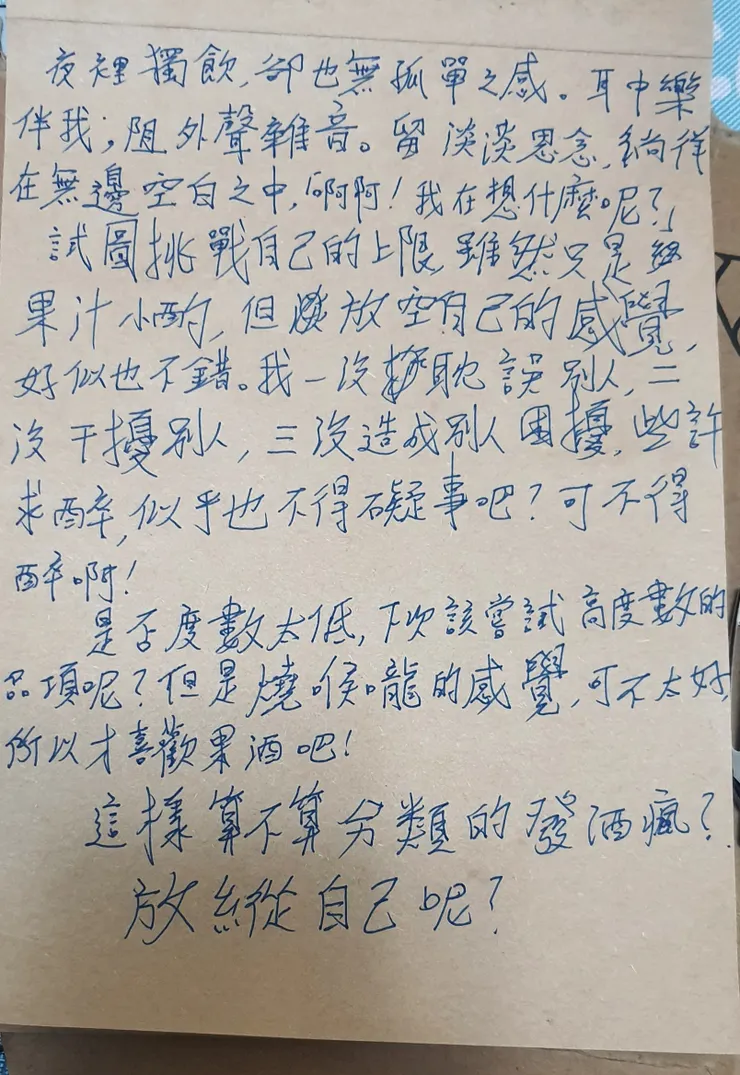 夜裡獨飲，卻也無孤單之感。耳中樂
伴我，阻外聲雜音。留淡淡思念，徜徉
在無邊空白之中，「啊啊！我在想什麼呢？」
試圖挑戰自己的上限，雖然只是
果汁小酌，但放空自己的感覺，
好似也不錯。我一沒耽誤別人，二
沒干擾別人，三沒造成別人困擾，些許
求醉，似乎也不得礙事吧？可不得
醉啊！
是否度數太低，下次該嘗試高度數的
品項呢？但是燒喉嚨的感覺，可不太好，
所以才喜歡果酒吧！
這樣算不算另類的發酒瘋？
放縱自己呢？